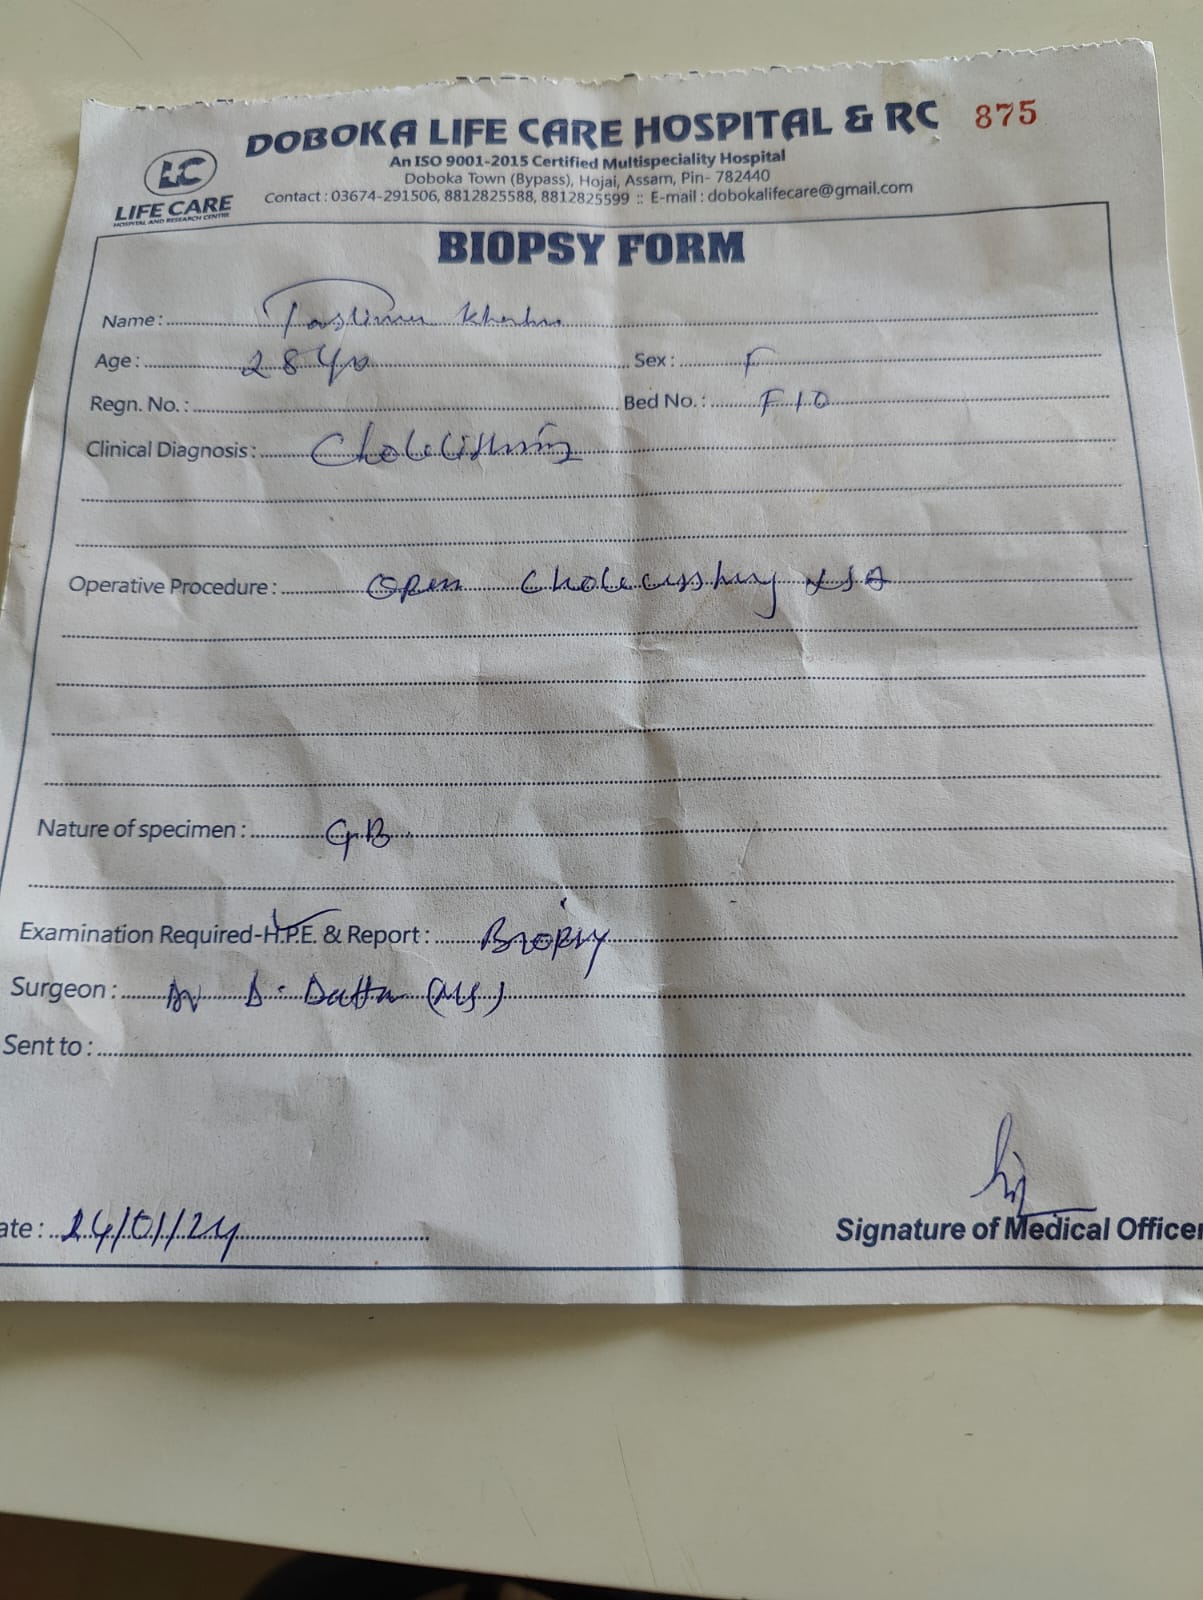 DOBOKA LIFE CARE HOSPITAL & RC 875
An ISO 9001-2015 Certified Multispeciality Hospital
Doboka Town (Bypass), Hojai, Assam, Pin- 782440
Contact : 03674-291506, 8812825588, 8812825599 :: E-mail : dobokalifecare@gmail.com
LC
LIFE CARE
HOSPITAL AND RESEARCH CENTRE
BIOPSY FORM
Name:
Age: 28 Sex: F
Regn. No.: Bed No.: F10
Clinical Diagnosis:
Operative Procedure: Open
Nature of specimen: GB
Examination Required-H.P.E. & Report: Biopsy
Surgeon: Dr D. Datta (MS)
Sent to:
ate: 24/01/24
Signature of Medical Officer